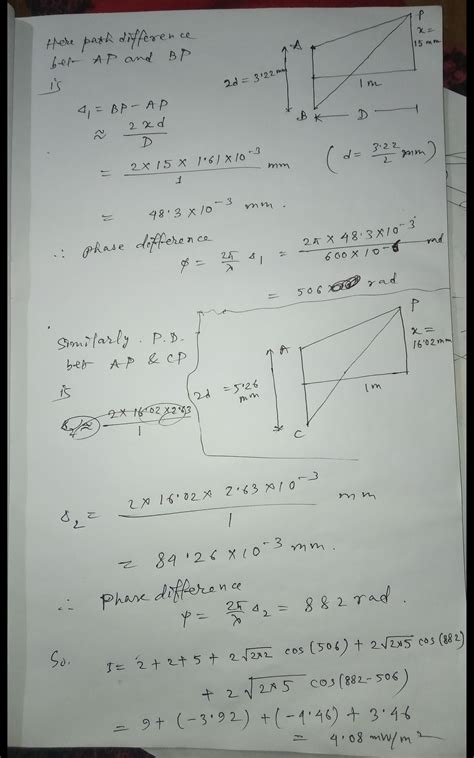 Here path difference
bet AP and BP
is
Δ₁ = BP - AP
≈ 2xd/D
= 2×15×1.61×10⁻³/1 mm
(d = 3.22/2 mm)
= 48.3×10⁻³ mm.
∴ phase difference
φ = 2π/λ Δ₁ = 2π × 48.3×10⁻³/600×10⁻⁶ rad
= 506 rad
A
P
x=
15 mm
2d = 3.22 mm
1m
B
D
Similarly. P.D.
bet AP & CP
is
Δ₂ ≈ 2×16.02×2.63/1
A
P
x=
16.02 mm
2d = 5.26
mm
1m
C
Δ₂ = 2×16.02×2.63×10⁻³/1 mm
= 84.26×10⁻³ mm.
∴ Phase difference
ψ = 2π/λ Δ₂ = 882 rad.
So.
I = 2+2+5+2√2×2 cos(506) + 2√2×5 cos(882)
+ 2√2×5 cos(882-506)
= 9+(-3.92)+(-4.46)+3.46
= 4.08 mW/m²